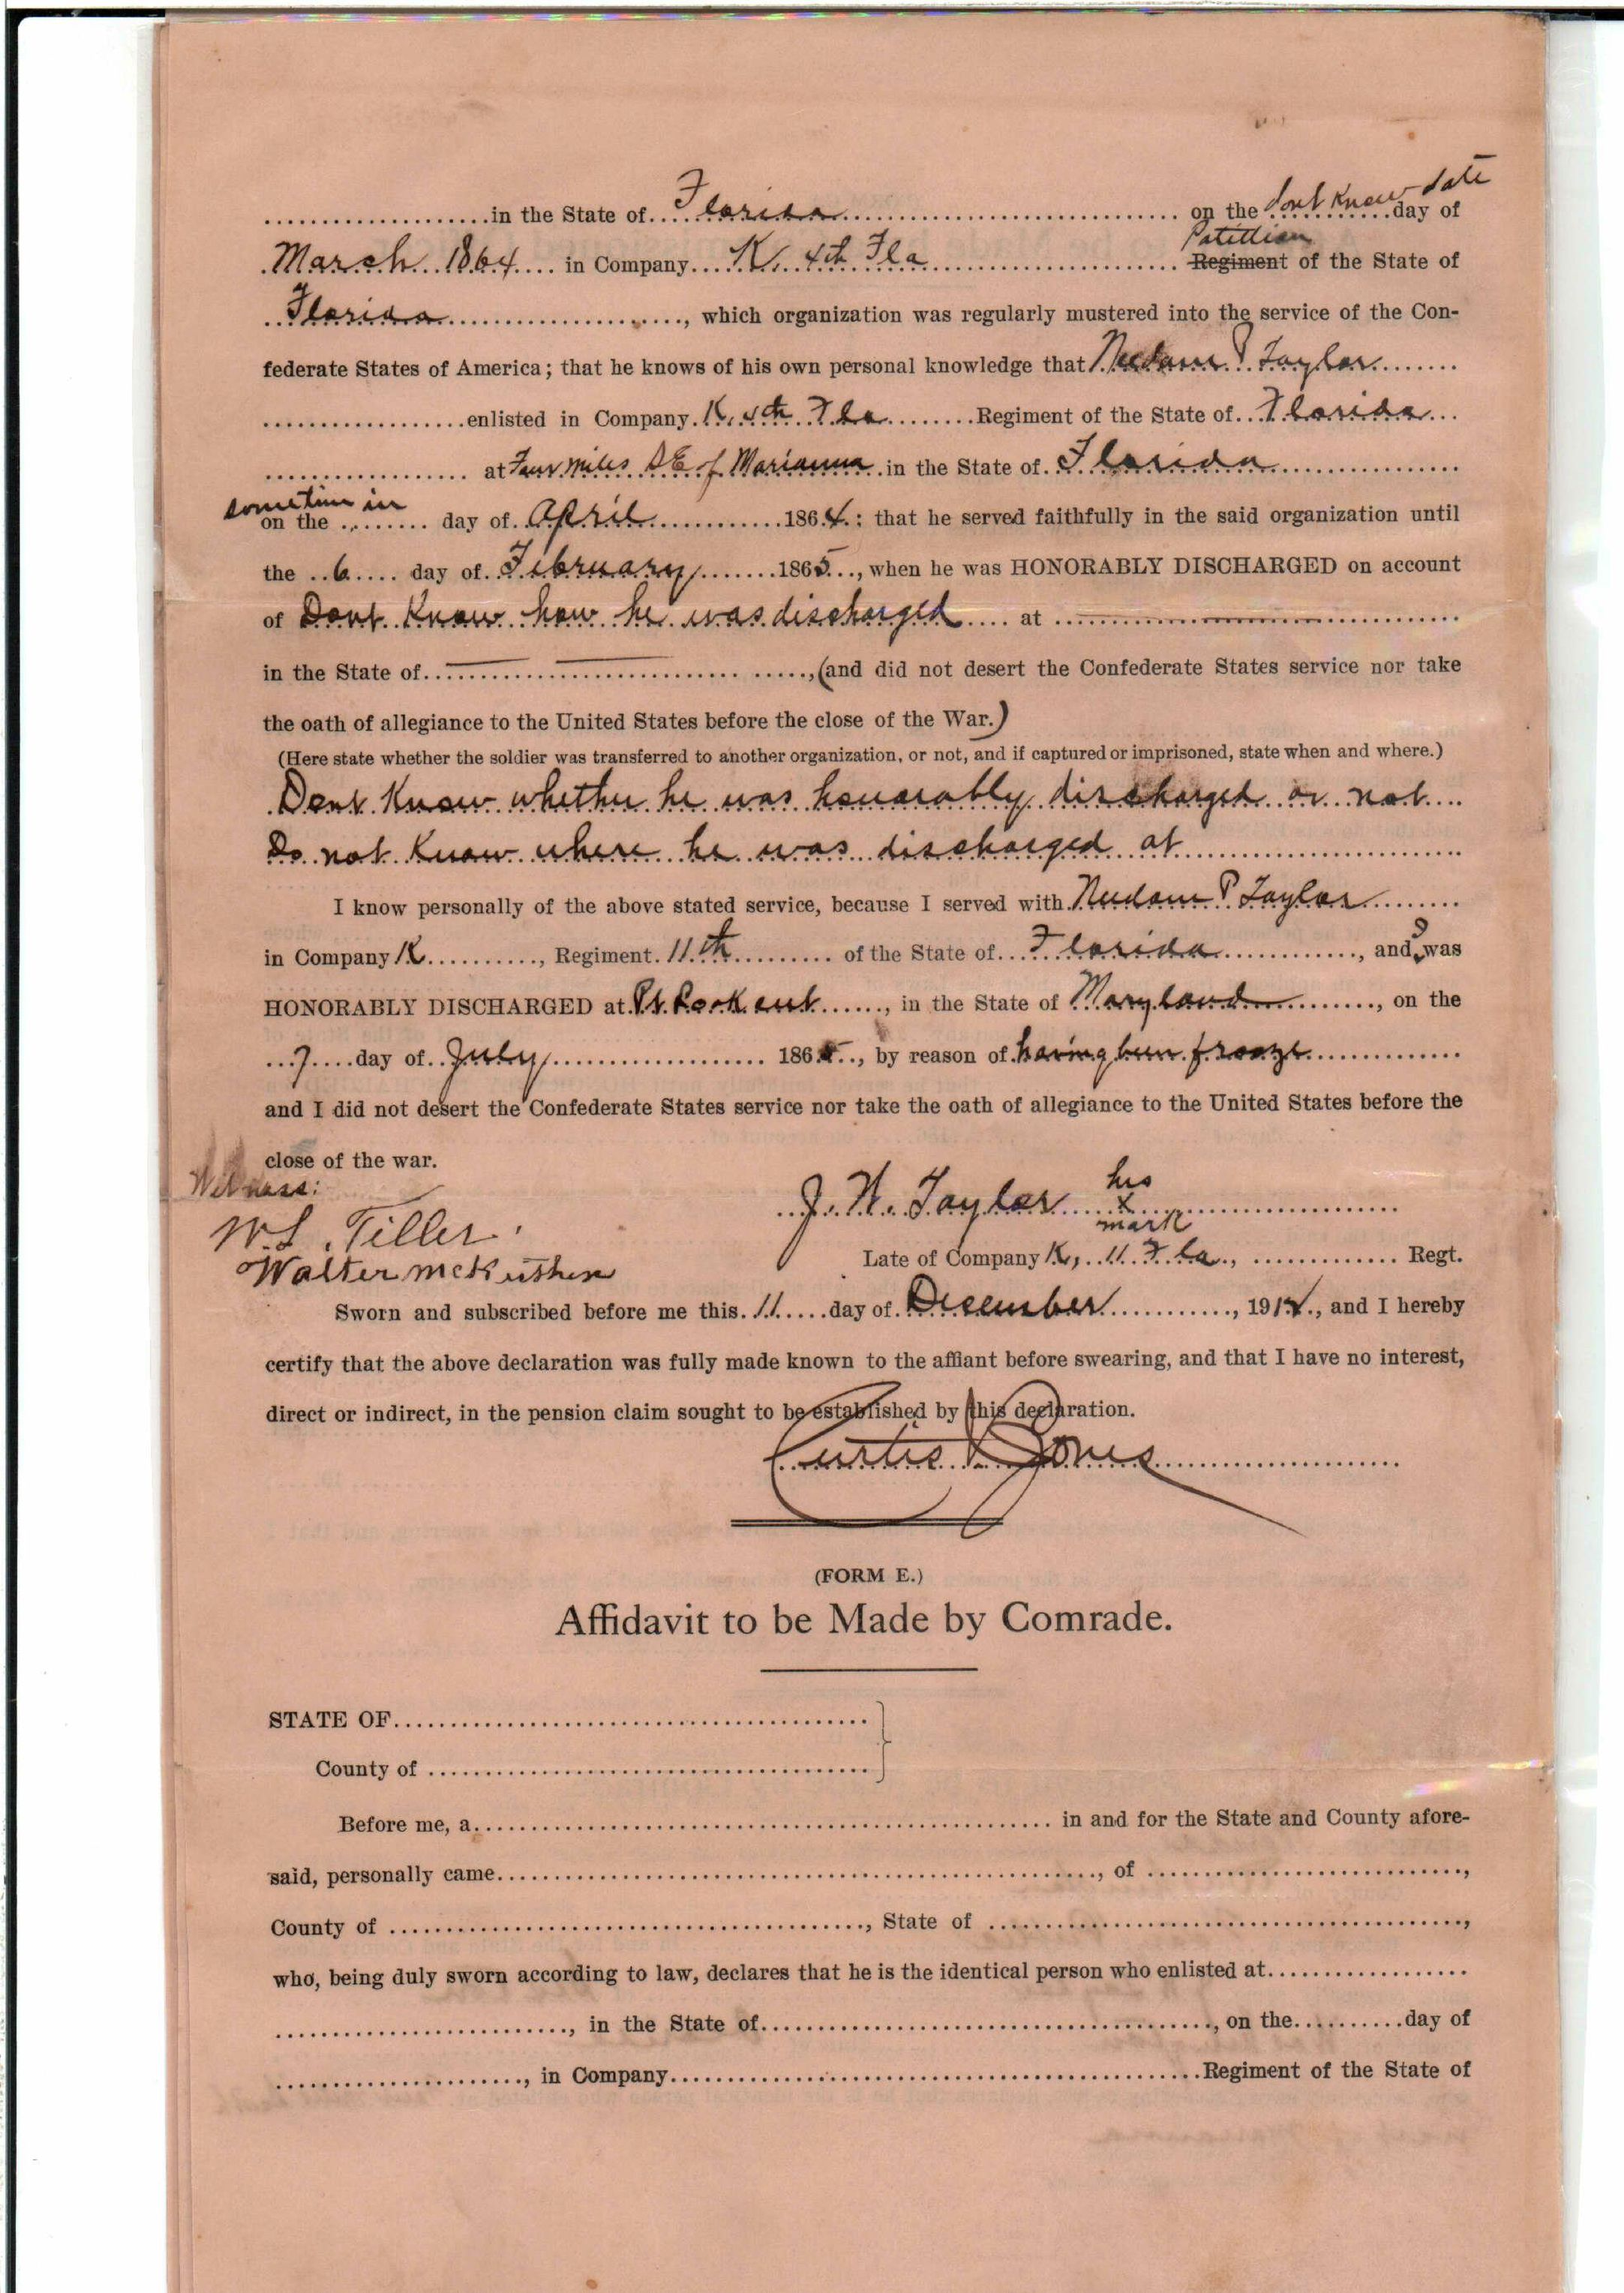 ....................in the State of....Florida.............................. on the dont know date day of
March 1864.... in Company....K. 4th Fla........................ Regiment of the State of
Florida......................, which organization was regularly mustered into the service of the Con-
federate States of America; that he knows of his own personal knowledge that Needam P Taylor.......
..................enlisted in Company K, 4th Fla........Regiment of the State of..Florida...
.................. at Four miles SE of Marianna in the State of Florida................
sometim in
on the ......... day of April............1864.: that he served faithfully in the said organization until
the ..6..... day of February.......1865..., when he was HONORABLY DISCHARGED on account
of Dont Know how he was discharged.... at ..................................
in the State of.................................., (and did not desert the Confederate States service nor take
the oath of allegiance to the United States before the close of the War.)
(Here state whether the soldier was transferred to another organization, or not, and if captured or imprisoned, state when and where.)
Dont Know whether he was honorably discharged or not....
Do not Know where he was discharged at........................
I know personally of the above stated service, because I served with Needam P Taylor.........
in Company K..........., Regiment. 11th......... of the State of...Florida............., and was
HONORABLY DISCHARGED at Pt Lookout......, in the State of Maryland..........., on the
...7....day of July.................... 1865..., by reason of having been frooze..............
and I did not desert the Confederate States service nor take the oath of allegiance to the United States before the
close of the war.
Witness:
J. W. Taylor his x mark
W. L. Tiller
Walter McKuthen
Late of Company K, 11 Fla., ............. Regt.
Sworn and subscribed before me this 11.....day of December..........., 191, and I hereby
certify that the above declaration was fully made known to the affiant before swearing, and that I have no interest,
direct or indirect, in the pension claim sought to be established by this declaration.
Curtis Jones
(FORM E.)
Affidavit to be Made by Comrade.
STATE OF..........................................
County of .......................................
Before me, a.................................................... in and for the State and County afore-
said, personally came......................................................, of ............................,
County of ..........................................., State of ..........................................,
who, being duly sworn according to law, declares that he is the identical person who enlisted at..................
.........................., in the State of........................................, on the..........day of
......................, in Company...............................................Regiment of the State of